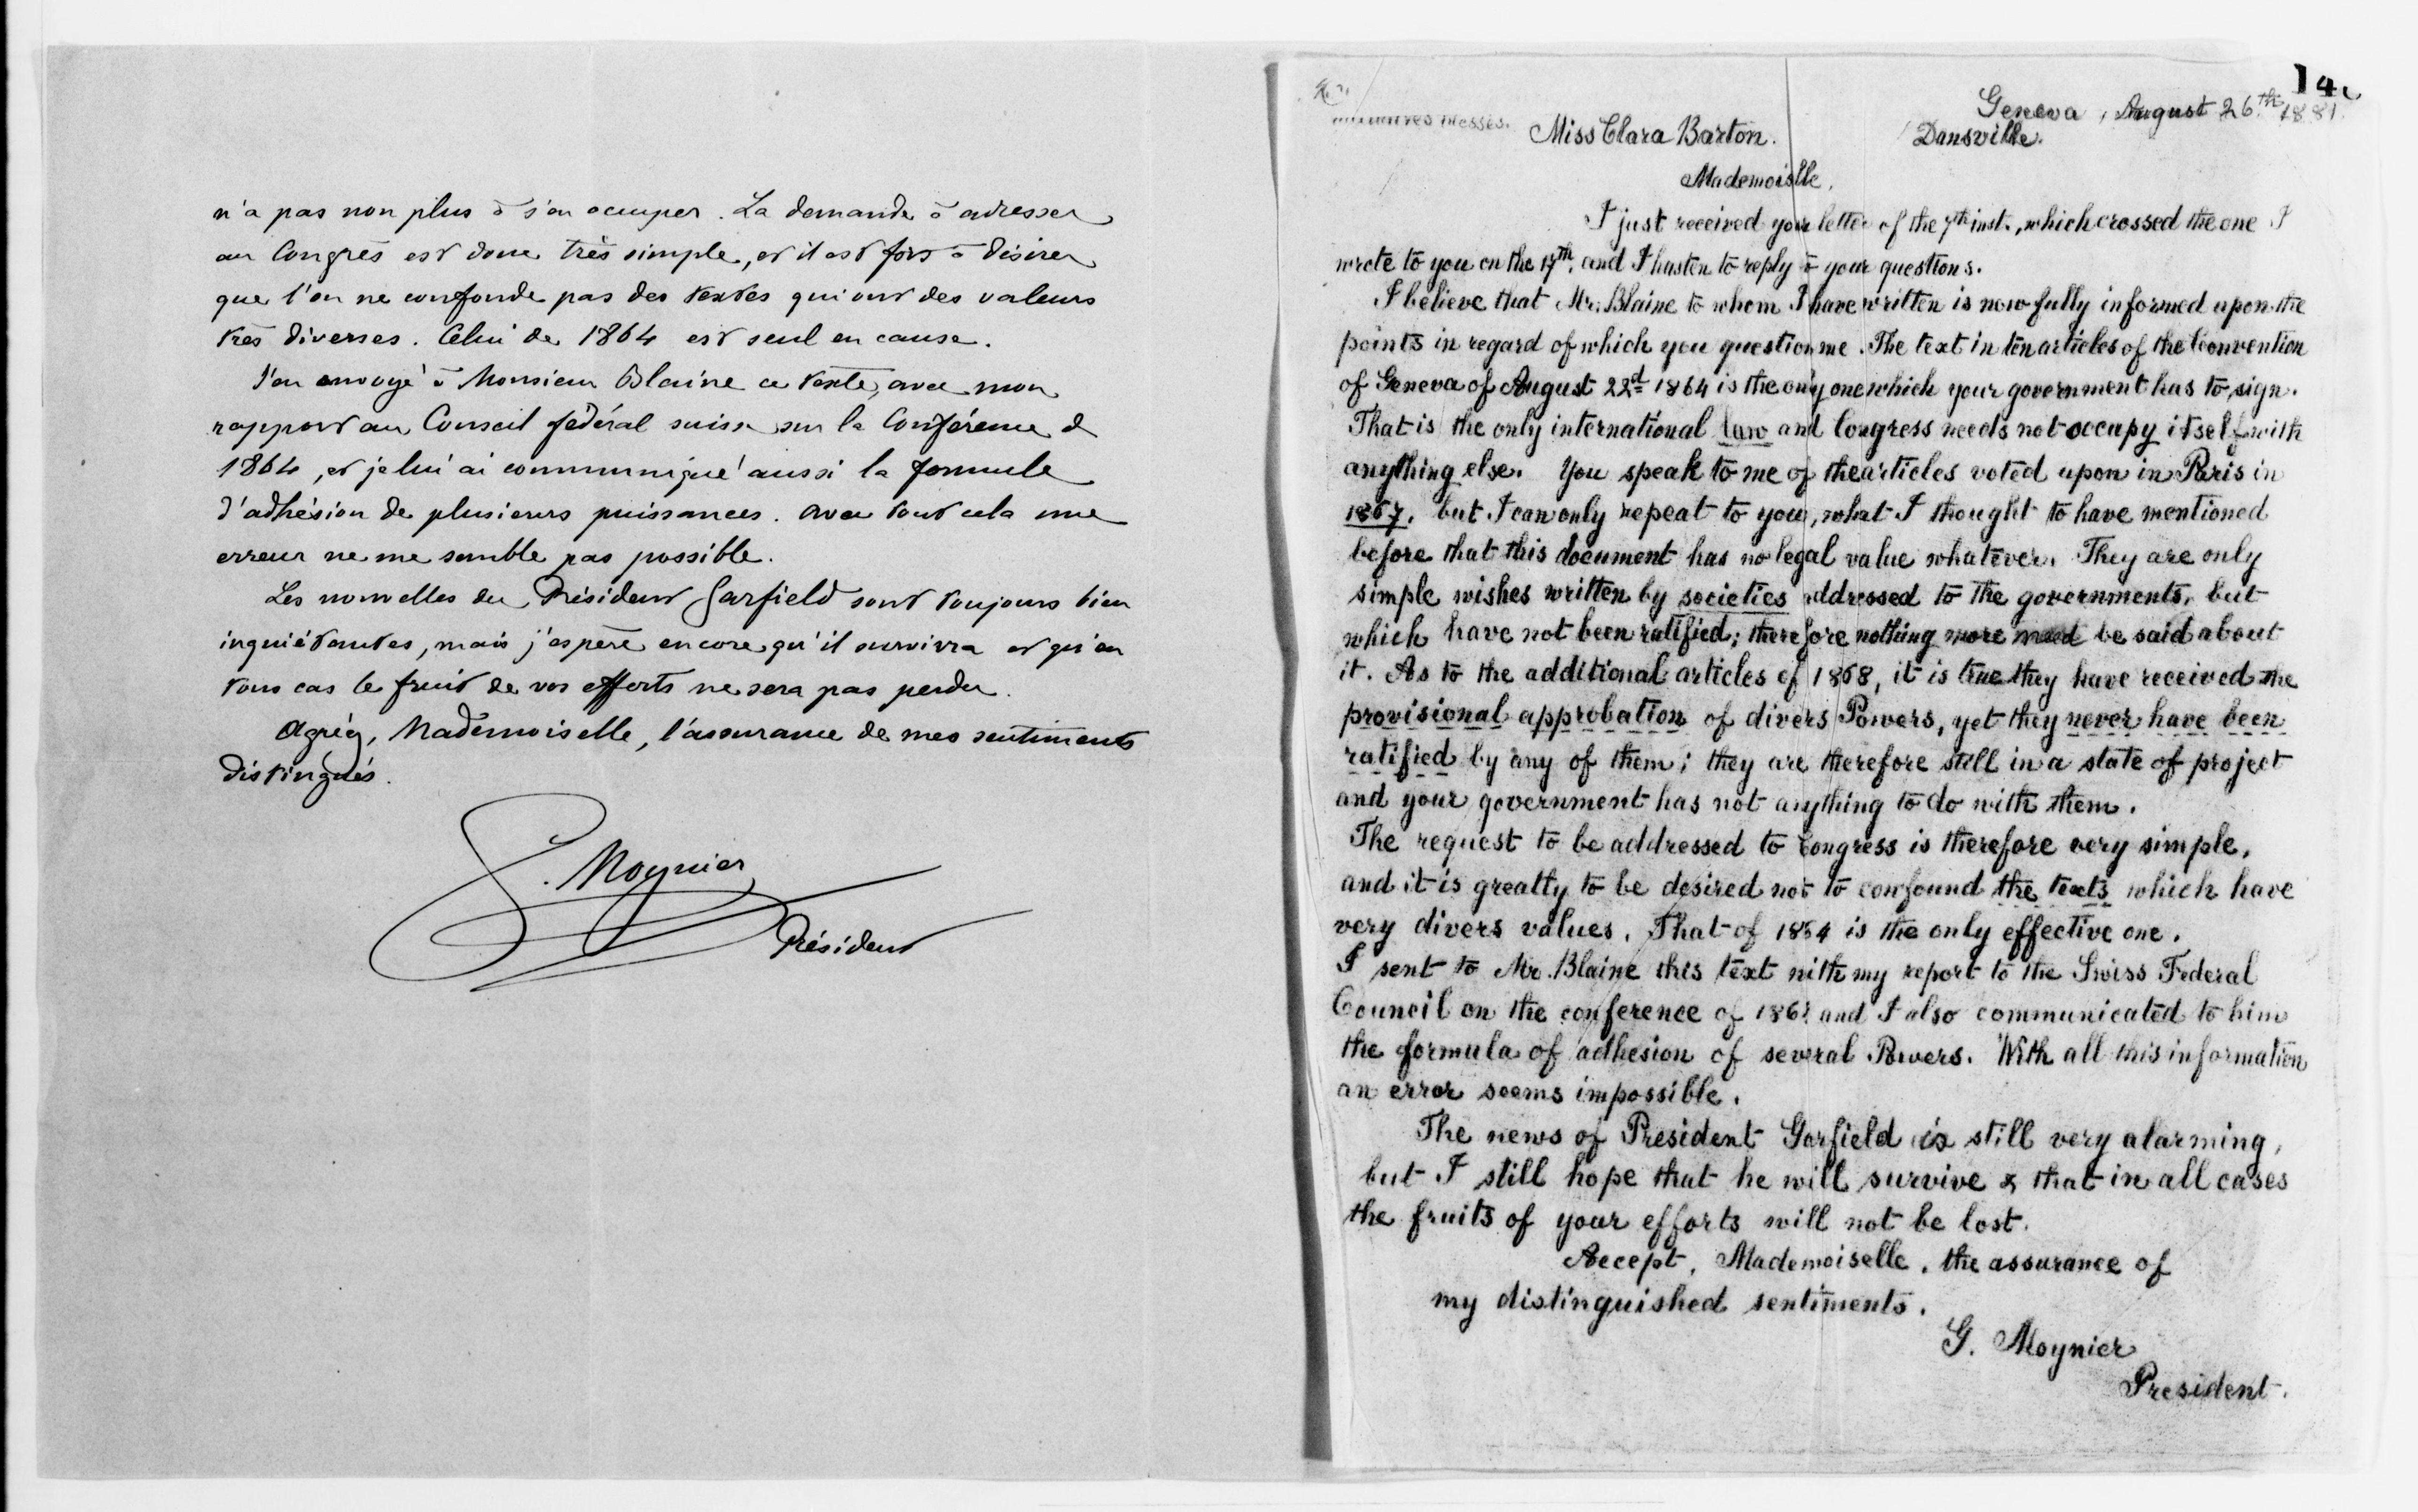 n'a pas non plus à s'en occuper. La demande à adresser
au Congrès est donc très simple, et il est fort à désirer
que l'on ne confonde pas des textes qui ont des valeurs
très diverses. Celui de 1864 est seul en cause.
J'ai envoyé à Monsieur Blaine ce texte, avec mon
rapport au Conseil fédéral suisse sur la Conférence d
1864, et je lui ai communiqué aussi la formule
d'adhésion de plusieurs puissances. Avec tout cela une
erreur ne me semble pas possible.
Les nouvelles du Président Garfield sont toujours bien
inquiétantes, mais j'espère encore qu'il survivra et qu'en
tous cas le fruit de vos efforts ne sera pas perdu.
Agréez, Mademoiselle, l'assurance de mes sentiments
distingués.
G. Moynier
Président
14
Geneva, August 26th 1881.
Miss Clara Barton. Dansville.
Mademoislle,
I just received your letter of the 7th inst., which crossed the one I
wrote to you on the 17th, and I hasten to reply to your questions.
I believe that Mr. Blaine to whom I have written is now fully informed upon the
points in regard of which you question me. The text in ten articles of the Convention
of Geneva of August 22d 1864 is the only one which your government has to sign.
That is the only international law and Congress needs not occupy itself with
anything else. You speak to me of the articles voted upon in Paris in
1867, but I can only repeat to you, what I thought to have mentioned
before that this document has no legal value whatever. They are only
simple wishes written by societies addressed to the governments, but
which have not been ratified; therefore nothing more need be said about
it. As to the additional articles of 1868, it is true they have received the
provisional approbation of divers Powers, yet they never have been
ratified by any of them; they are therefore still in a state of project
and your government has not anything to do with them.
The request to be addressed to Congress is therefore very simple,
and it is greatly to be desired not to confound the texts which have
very divers values. That of 1864 is the only effective one.
I sent to Mr. Blaine this text with my report to the Swiss Federal
Council on the conference of and I also communicated to him
the formula of adhesion of several Powers. With all this information
an error seems impossible.
The news of President Garfield is still very alarming,
but I still hope that he will survive & that in all cases
the fruits of your efforts will not be lost.
Accept, Mademoiselle, the assurance of
my distinguished sentiments.
G. Moynier
President.